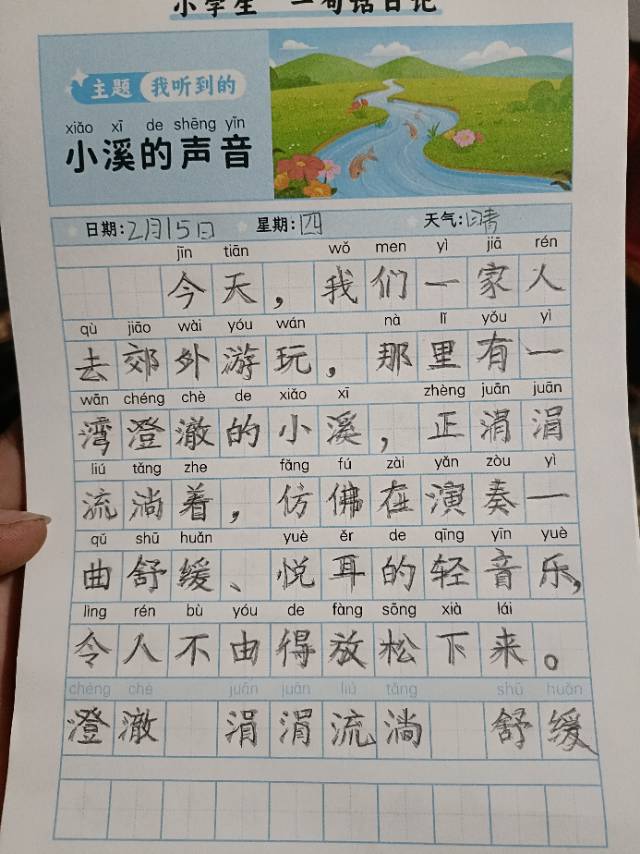 小学生 一句话日记
主题 我听到的
xiǎo xī de shēng yīn
小溪的声音
日期:2月15日 星期:四 天气:晴
jīn tiān wǒ men yì jiā rén
今天，我们一家人
qù jiāo wài yóu wán nà lǐ yǒu yì
去郊外游玩，那里有一
wān chéng chè de xiǎo xī zhèng juān juān
湾澄澈的小溪，正涓涓
liú tǎng zhe fǎng fú zài yǎn zòu yì
流淌着，仿佛在演奏一
qǔ shū huǎn yuè ěr de qīng yīn yuè
曲舒缓、悦耳的轻音乐，
lìng rén bù yóu de fàng sōng xià lái
令人不由得放松下来。
chéng chè juān juān liú tǎng shū huǎn
澄澈 涓涓流淌 舒缓